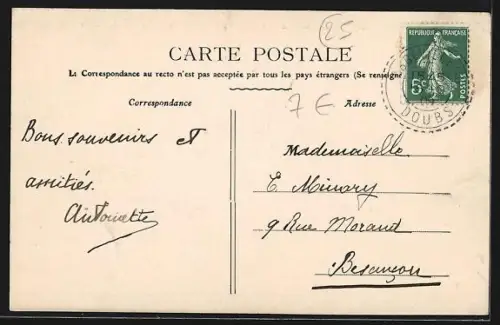 25
CARTE POSTALE
La Correspondance au recto n'est pas acceptée par tous les pays étrangers (Se renseigne
Correspondance
7 €
Adresse
REPUBLIQUE FRANÇAISE
5c
POSTES
DOUBS
Bons souvenirs et
amitiés.
Antoinette
Mademoiselle
E. Minary
9 Rue Morand
Besançon